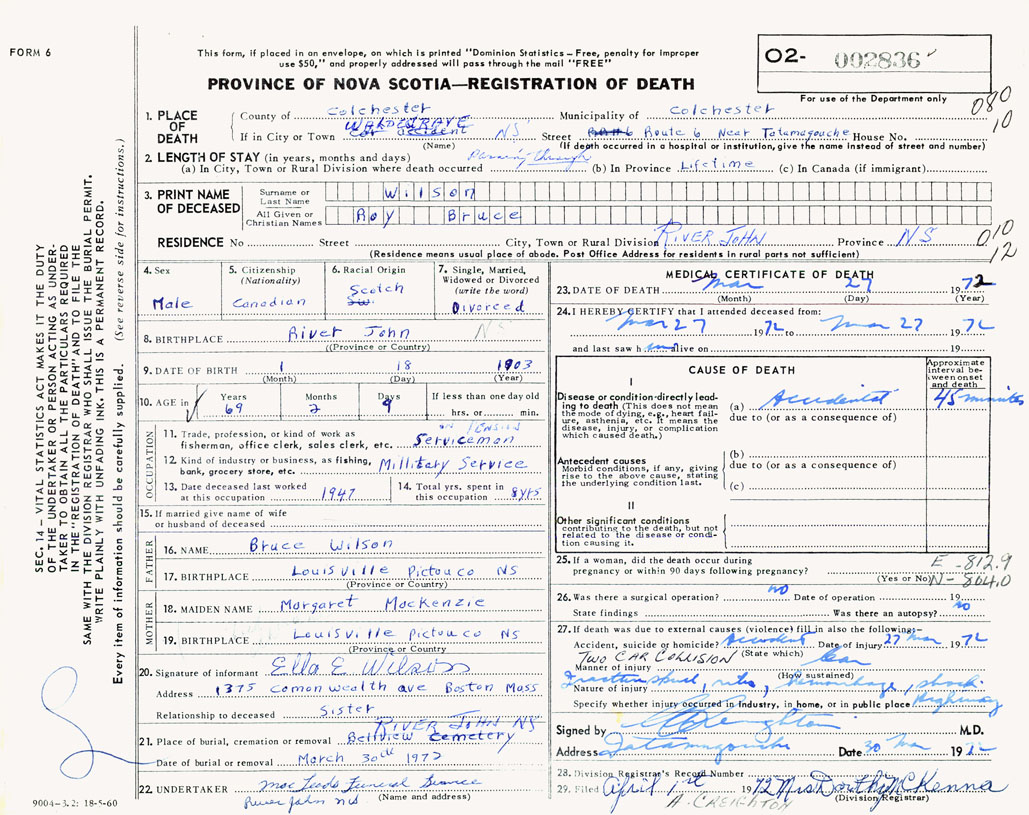 FORM 6
This form, if placed in an envelope, on which is printed "Dominion Statistics – Free, penalty for improper
use $50," and properly addressed will pass through the mail "FREE"
PROVINCE OF NOVA SCOTIA—REGISTRATION OF DEATH
02- 002836
For use of the Department only
080
10
1. PLACE OF DEATH
County of Colchester Municipality of Colchester
WALDEGRAVE
If in City or Town car accident NS Street Route 6 Near Tatamagouche House No.
(Name) (If death occurred in a hospital or institution, give the name instead of street and number)
2. LENGTH OF STAY (in years, months and days)
(a) In City, Town or Rural Division where death occurred Passing through (b) In Province Lifetime (c) In Canada (if immigrant)
3. PRINT NAME OF DECEASED
Surname or Last Name Wilson
All Given or Christian Names Roy Bruce
RESIDENCE No Street City, Town or Rural Division RIVER JOHN Province NS
010
12
(Residence means usual place of abode. Post Office Address for residents in rural parts not sufficient)
4. Sex
Male
5. Citizenship
(Nationality)
Canadian
6. Racial Origin
Scotch
7. Single, Married,
Widowed or Divorced
(write the word)
Divorced
8. BIRTHPLACE River John NS
((Province or Country)
9. DATE OF BIRTH 1 18 1903
(Month) (Day) (Year)
10. AGE in Years Months Days If less than one day old
69 2 9 hrs. or min.
OCCUPATION
on PENSION
11. Trade, profession, or kind of work as
fisherman, office clerk, sales clerk, etc. Serviceman
12. Kind of industry or business, as fishing,
bank, grocery store, etc. Millitary Service
13. Date deceased last worked
at this occupation 1947
14. Total yrs. spent in
this occupation 8 yrs
15. If married give name of wife
or husband of deceased
FATHER
16. NAME Bruce Wilson
17. BIRTHPLACE Louisville Pictou co NS
(Province or Country)
MOTHER
18. MAIDEN NAME Margaret MacKenzie
19. BIRTHPLACE Louisville Pictou co NS
(Province or Country)
20. Signature of informant Ella E Wilson
Address 1375 Comonwealth ave Boston Mass
Relationship to deceased Sister
RIVER JOHN NS
21. Place of burial, cremation or removal Bellview Cemetery
Date of burial or removal March 30th 1972
22. UNDERTAKER MacLeods Funeral Service
River John NS (Name and address)
MEDICAL CERTIFICATE OF DEATH
23. DATE OF DEATH Mar 27 1972
(Month) (Day) (Year)
24. I HEREBY CERTIFY that I attended deceased from:
Mar 27 1972 to Mar 27 1972
and last saw h im alive on 19
CAUSE OF DEATH
Approximate
interval be-
tween onset
and death
I
Disease or condition directly lead-
ing to death (This does not mean
the mode of dying, e.g., heart fail-
ure, asthenia, etc. It means the
disease, injury, or complication
which caused death.)
(a) Accidental 45 minutes
due to (or as a consequence of)
Antecedent causes
Morbid conditions, if any, giving
rise to the above cause, stating
the underlying condition last.
(b)
due to (or as a consequence of)
(c)
II
Other significant conditions
contributing to the death, but not
related to the disease or condi-
tion causing it.
25. If a woman, did the death occur during
pregnancy or within 90 days following pregnancy?
(Yes or No)
E-812.9
N-804.0
26. Was there a surgical operation? no Date of operation 19
State findings Was there an autopsy? no
27. If death was due to external causes (violence) fill in also the following:–
Accident, suicide or homicide? Accident Date of injury 27 Mar 1972
(State which)
TWO CAR COLLISION
Manner of injury Car
(How sustained)
Nature of injury Fracture skull, ribs, hemorrhage, shock
Specify whether injury occurred in industry, in home, or in public place Highway
Signed by Creighton M.D.
Address Tatamagouche Date 30 Mar 1972
28. Division Registrar's Record Number
29. Filed April 1st 1972 Mrs Dorothy McKenna
(Division Registrar)
A. CREIGHTON
SEC. 14 – VITAL STATISTICS ACT MAKES IT THE DUTY
OF THE UNDERTAKER OR PERSON ACTING AS UNDER-
TAKER TO OBTAIN ALL THE PARTICULARS REQUIRED
IN THE "REGISTRATION OF DEATH" AND TO FILE THE
SAME WITH THE DIVISION REGISTRAR WHO SHALL ISSUE THE BURIAL PERMIT.
WRITE PLAINLY WITH UNFADING INK. THIS IS A PERMANENT RECORD.
Every item of information should be carefully supplied. (See reverse side for instructions.)
9004–3.2: 18-5-60